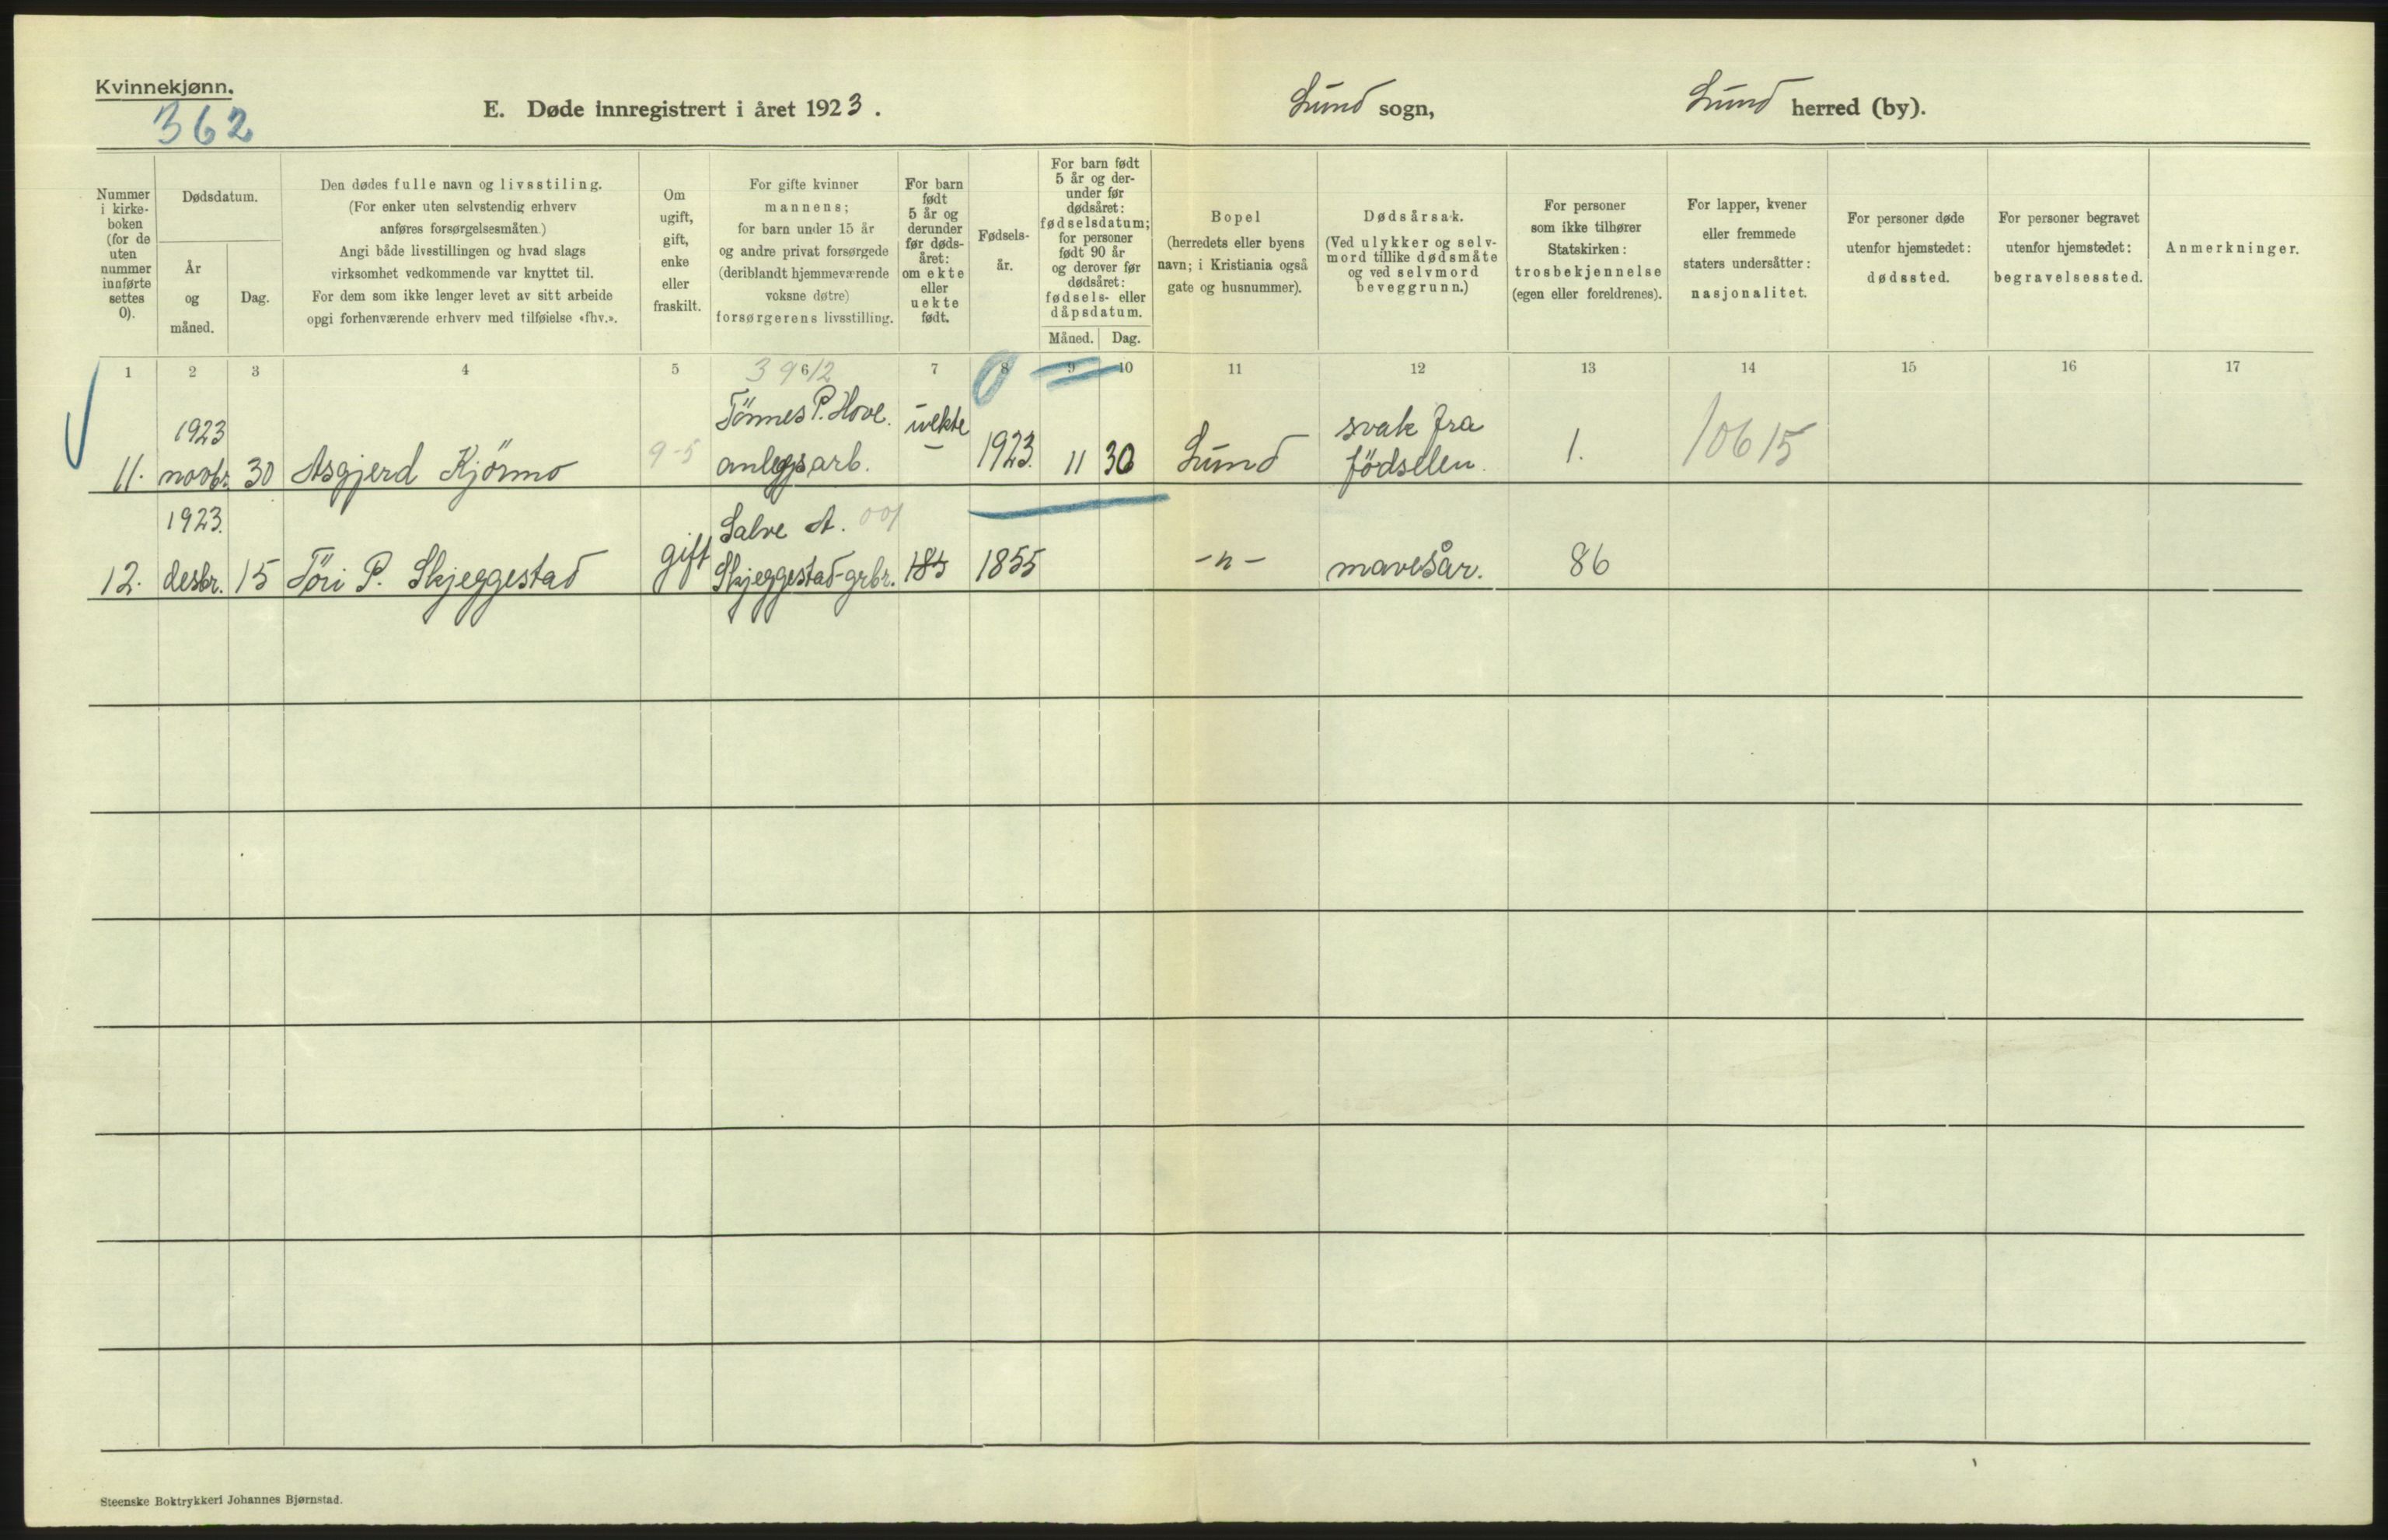 Kvinnekjønn.
362
E. Døde innregistrert i året 1923.
Lund sogn,
Lund herred (by).
Nummer
i kirke-
boken
(for de
uten
nummer
innførte
settes
0).
Dødsdatum.
År
og
måned.
Dag.
Den dødes fulle navn og livsstiling.
(For enker uten selvstendig erhverv
anføres forsørgelsesmåten.)
Angi både livsstillingen og hvad slags
virksomhet vedkommende var knyttet til.
For dem som ikke lenger levet av sitt arbeide
opgi forhenværende erhverv med tilføielse «fhv.».
Om
ugift,
gift,
enke
eller
fraskilt.
For gifte kvinner
mannens;
for barn under 15 år
og andre privat forsørgede
(deriblandt hjemmeværende
voksne døtre)
forsørgerens livsstilling.
For barn
født
5 år og
derunder
før døds-
året:
om ekte
eller
uekte
født.
Fødsels-
år.
For barn født
5 år og der-
under før
dødsåret:
fødselsdatum;
for personer
født 90 år
og derover før
dødsåret:
fødsels- eller
dåpsdatum.
Måned. Dag.
Bopel
(herredets eller byens
navn; i Kristiania også
gate og husnummer).
Dødsårsak.
(Ved ulykker og selv-
mord tillike dødsmåte
og ved selvmord
beveggrunn.)
For personer
som ikke tilhører
Statskirken:
trosbekjennelse
(egen eller foreldrenes).
For lapper, kvener
eller fremmede
staters undersåtter:
nasjonalitet.
For personer døde
utenfor hjemstedet:
dødssted.
For personer begravet
utenfor hjemstedet:
begravelsessted.
Anmerkninger.
1 2 3 4 5 6 7 8 9 10 11 12 13 14 15 16 17
3912
1923 Tönnes P. Hove. uekte svak fra
11. novbr. 30 Asgjerd Kjörmo 9-5 anlegsarb. 1923. 11 30 Lund födselen. 1. 10615
1923. Salve A. 001
12. desbr. 15 Töri P. Skjeggestad gift Skjeggestad-grbr. 185 1855 -"- mavesår. 86
Steenske Boktrykkeri Johannes Bjørnstad.